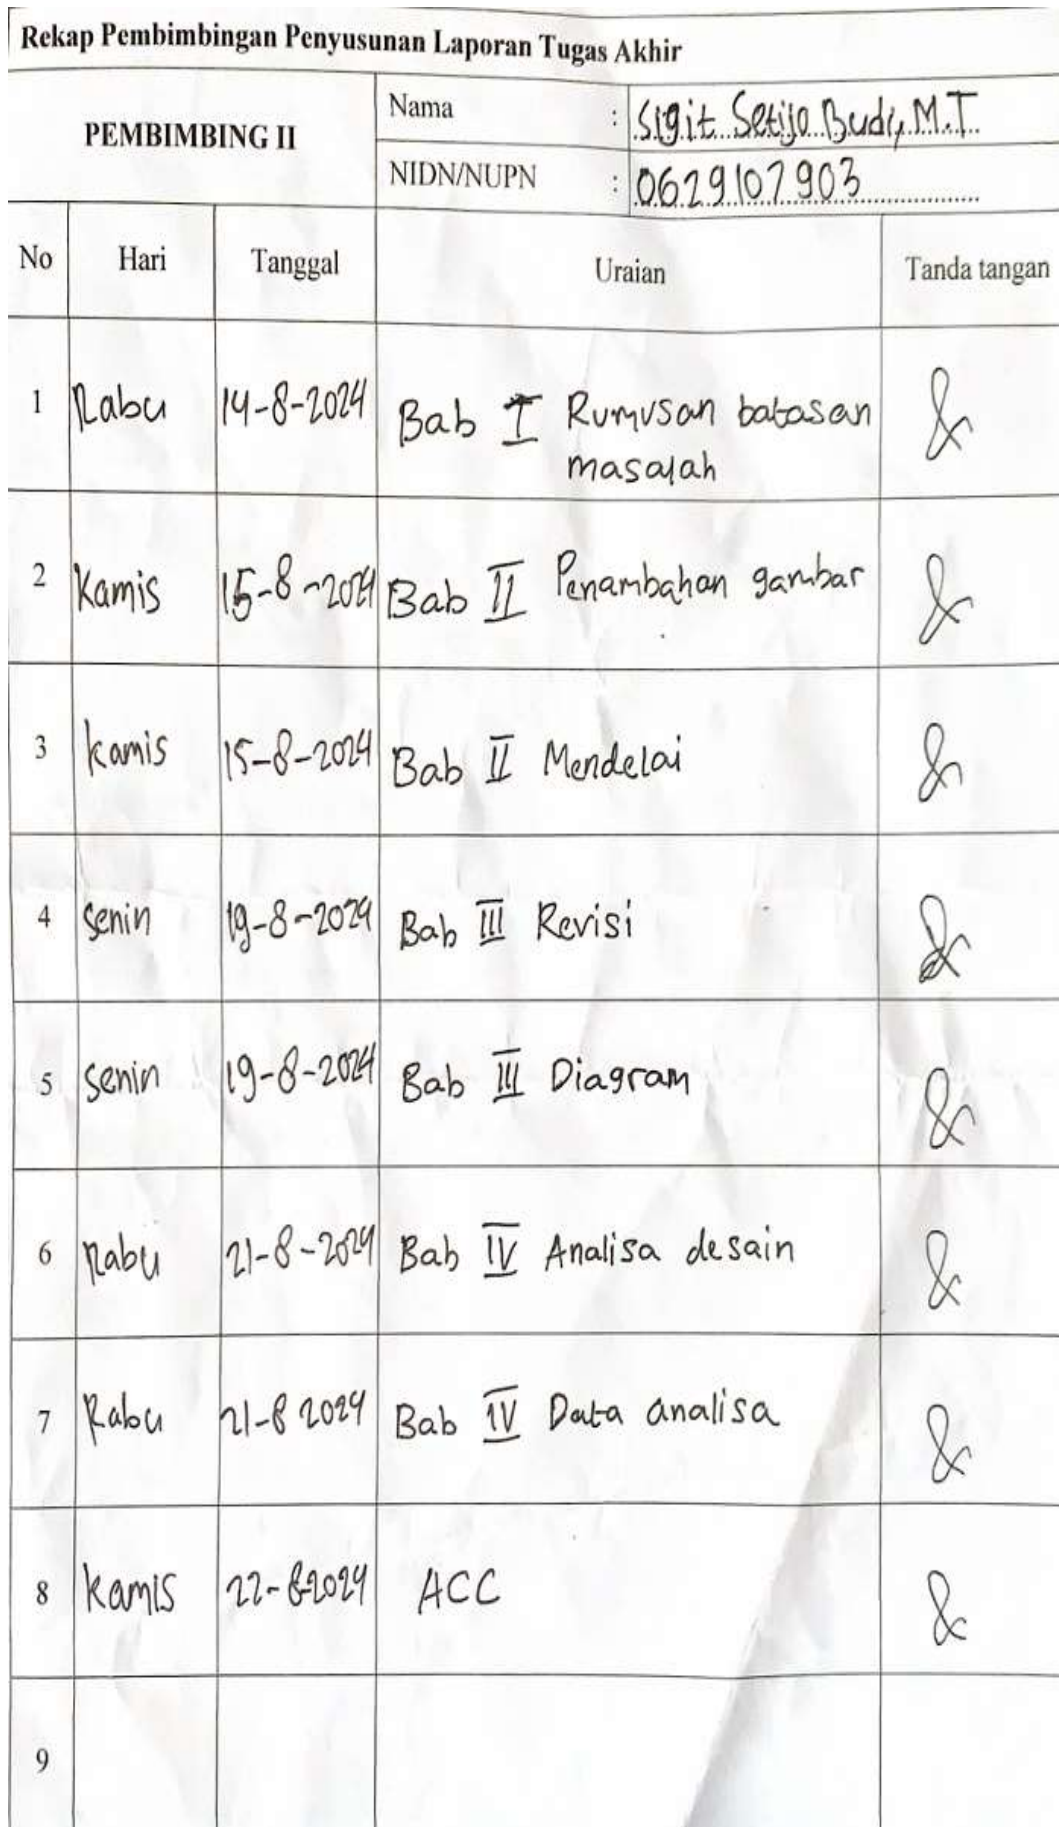 Rekap Pembimbingan Penyusunan Laporan Tugas Akhir
PEMBIMBING II
Nama : Sigit Setijo Budi, M.T.
NIDN/NUPN : 0629107903
No Hari Tanggal Uraian Tanda tangan
1 Rabu 14-8-2024 Bab I Rumusan batasan
masalah
2 Kamis 15-8-2024 Bab II Penambahan gambar
3 Kamis 15-8-2024 Bab II Mendelai
4 Senin 19-8-2024 Bab III Revisi
5 Senin 19-8-2024 Bab III Diagram
6 Rabu 21-8-2024 Bab IV Analisa desain
7 Rabu 21-8 2024 Bab IV Data analisa
8 Kamis 22-8-2024 ACC
9